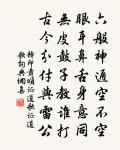 六般神通空不空
眼耳鼻舌身意同
無皮鼓子教誰打
古今分付與雷公
釋印肅頌證道歌證道
歌詞典調集